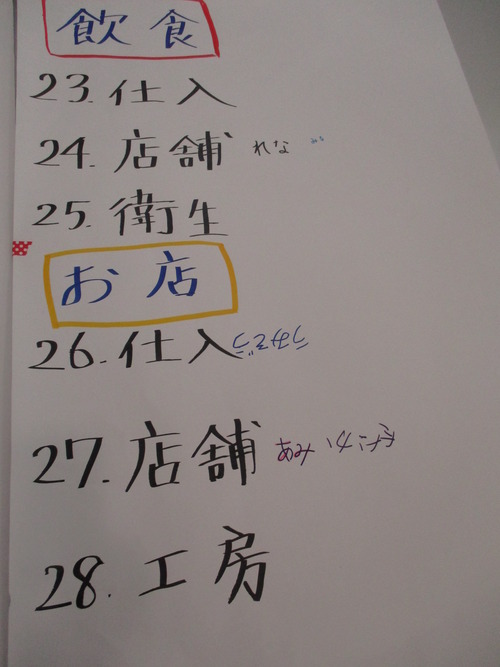 飲食
23. 仕入
24. 店舗 れな
25. 衛生
お店
26. 仕入
27. 店舗 あみ
28. 工房